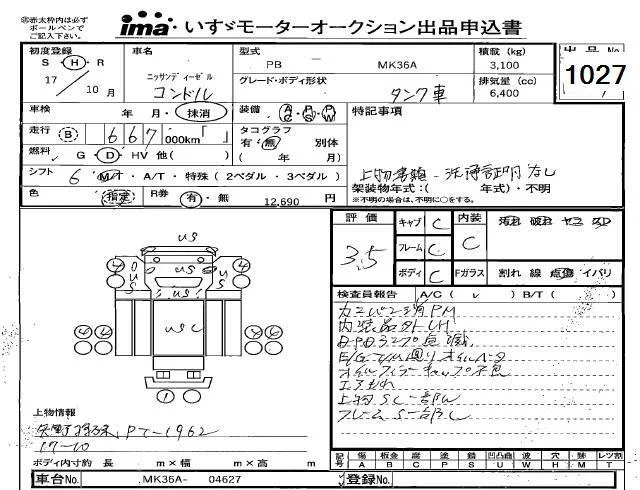 ㊟赤太枠内は必ず
ボールペンで
ご記入下さい。
ima いすゞモーターオークション出品申込書
初度登録 車名 型式 積載 (kg) 出品No.
S・H・R ニッサンディーゼル PB MK36A 3,100 1027
17年10月 コンドル グレード・ボディ形状 タンク車 排気量 (cc) 6,400
車検 年・月・抹消 装備 AC PS PW 特記事項
走行 B 667,000km「 」 タコグラフ
有・無 別体
燃料 G・D・HV 他( ) ( 年 月)
シフト 6 MT・A/T・特殊(2ペダル・3ペダル) 上物書類-洗浄証明なし
架装物年式:( 年式)・不明
色 指定 R券 有・無 12,690 円 ※不明の場合は、不明に○をする。
評価 キャブ C 内装 汚れ 破れ ヤニ スレ
3.5 フレーム C C
ボディ C Fガラス 割れ 線 点傷 イバリ
検査員報告 A/C( ✓ ) B/T( )
US
4 OUS US US 4
US
4 4 USC 4 4
内装品外しH
エアもれ
上物SC一部W
フレームS一部C
上物情報
PT-1962
17-10
ボディ内寸約 長 m×幅 m×高 m
記号 傷 板金 腐 塗 錆 凹凸曲 波 穴 跡 レツ割
A B C P S U W H M T
車台No. MK36A- 04627 登録No.